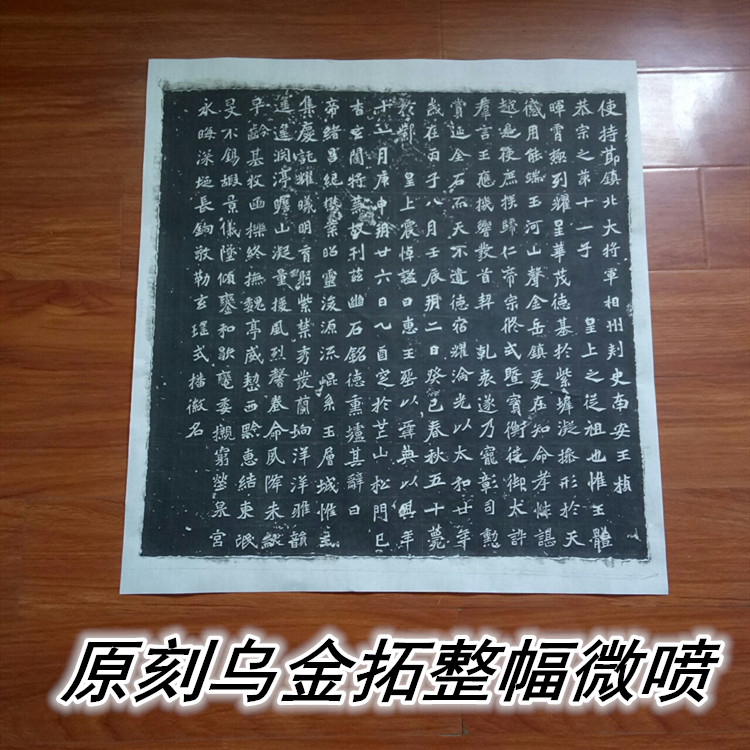 使持節鎮北大將軍相州刾史南安王楨
恭宗之第十一子 皇上之從祖也惟王體
暉霄極列耀星華茂德基於紫墀凝操形於天
儀用能端玉河山聲金岳鎮爰在知命孝性諶
越是使庶族歸仁帝宗攸式暨寶衡徙御大訊
羣言王應機響發首契 乾衷遂乃寵彰司勳
賞延金石而天不遺德宿耀淪光以太和廿年
歲在丙子八月壬辰朔二日癸巳春秋五十薨
於鄴 皇上震悼諡曰惠王葬以彝典以其年
十一月庚申朔廿六日乙酉窆於芒山松門已
杳玄闥將蕪故刊茲幽石銘德熏壚其辭曰
帝緒昌紀懋業昭靈浚源流崐系玉層城惟王
集慶託耀曦明育躬紫禁秀發蘭坰洋洋雅韻
遙遙淵渟瞻山凝量援風烈馨卷命夙降未黻
早齡基牧函櫟終撫魏亭威整西黔惠結東氓
旻不錫嘏景儀墜傾鑾和歇轡委櫬窮塋泉宮
永晦深埏長鍵敬勒玄瑤式揚徽名
原刻乌金拓整幅微喷